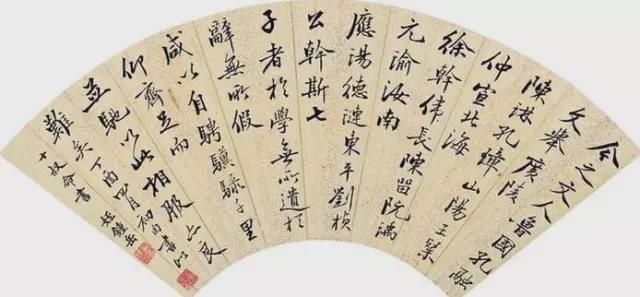 今之文人魯國孔融
文舉廣陵
陳琳孔璋山陽王粲
仲宣北海
徐幹偉長陳留阮瑀
元渝汝南
應湯德漣東平劉楨
公幹斯七
子者於學無所遺於
辭無所假
咸以自騁驥騄千里
仰齊足而
並馳以此相服亦良
難矣丁酉四月初
十叔命書